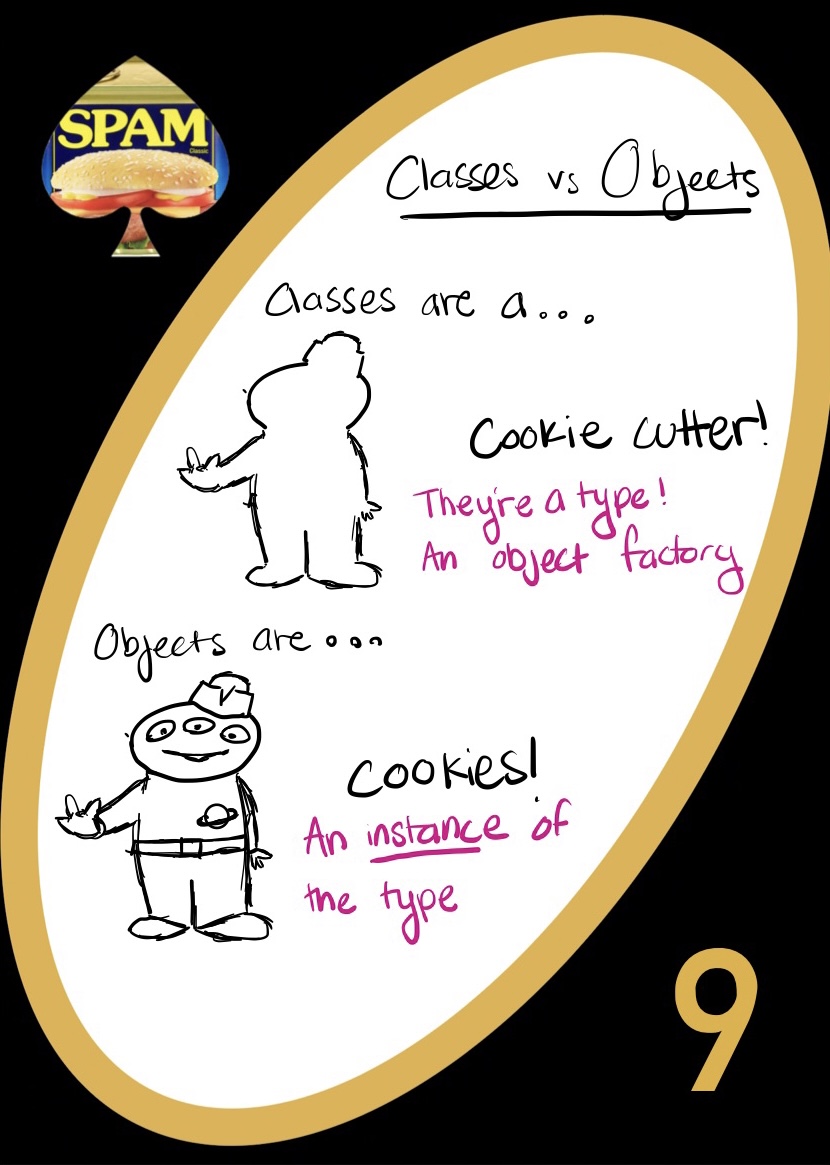 SPAM
Classic
Classes vs Objects
Classes are a...
Cookie cutter!
They're a type!
An object factory
Objects are...
Cookies!
An instance of
the type
9